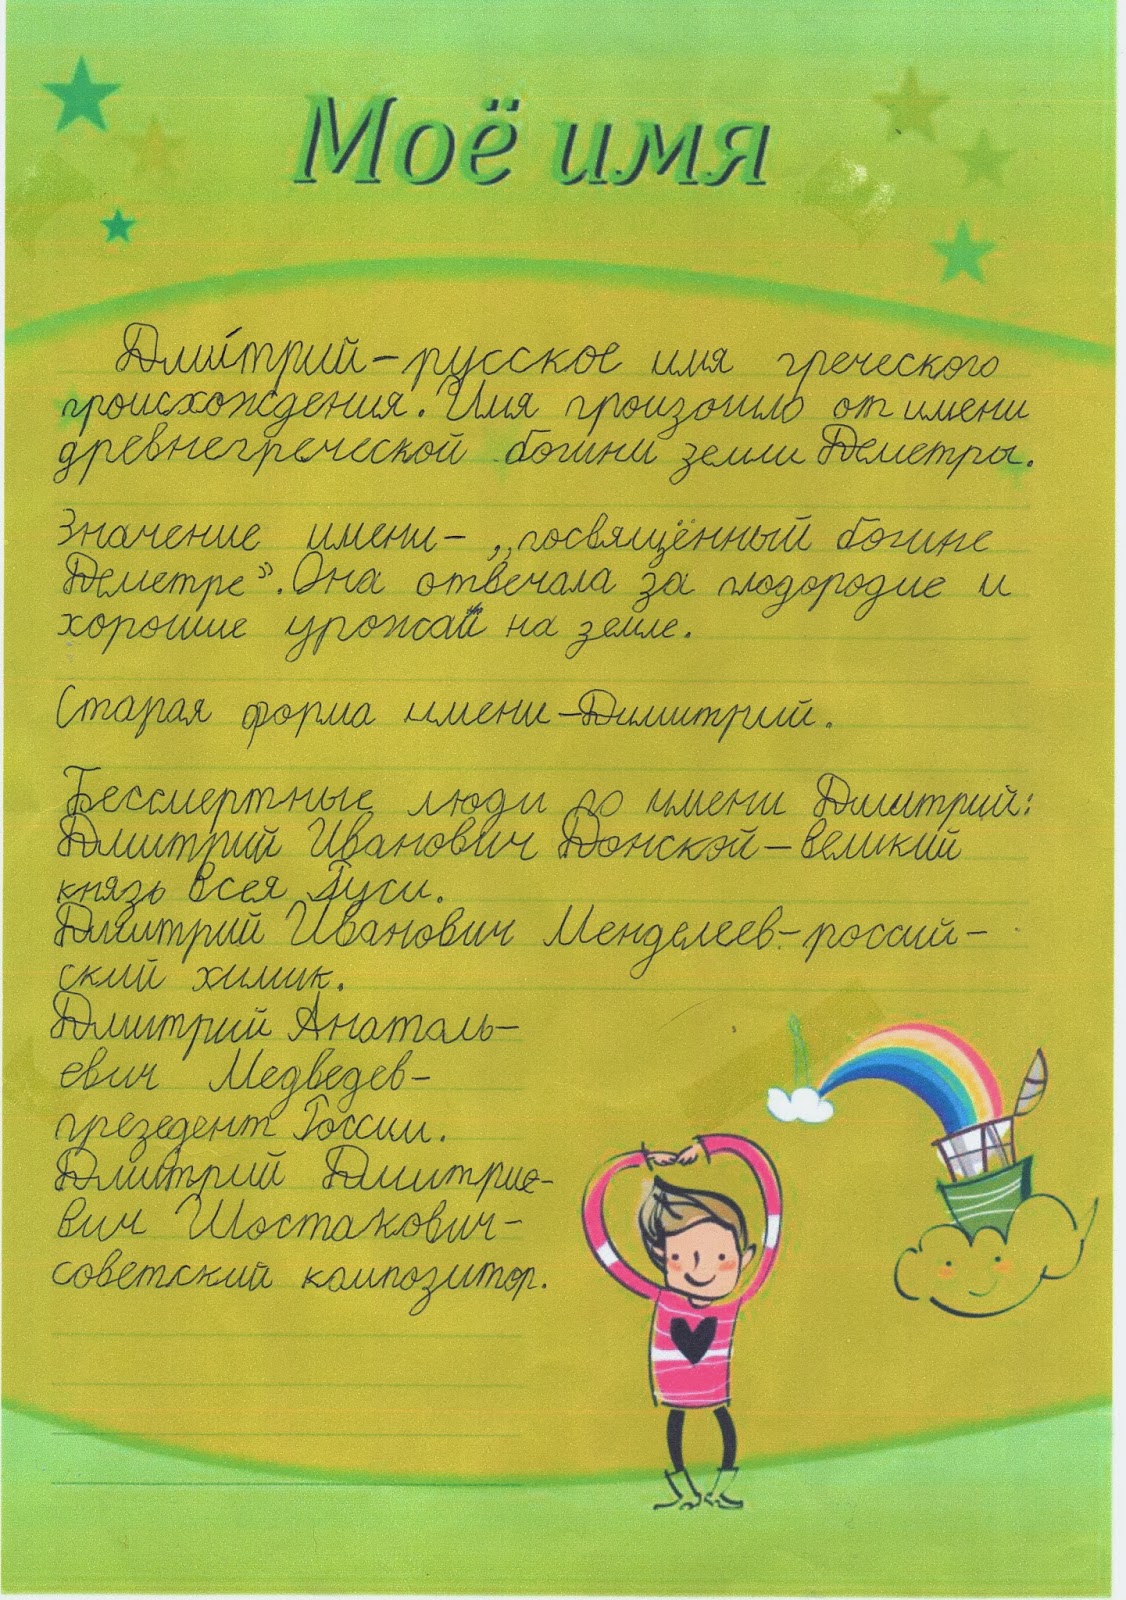 Моё имя
Дми́трий – русское имя греческого
происхождения. Имя произошло от имени
древнегреческой богини земли Деметры.
Значение имени – „посвящённый богине
Деметре”. Она отвечала за плодородие и
хорошие урожаи на земле.
Старая форма имени – Димитрий.
Бессмертные люди по имени Дмитрий:
Дмитрий Иванович Донской – великий
князь всея Руси.
Дмитрий Иванович Менделеев – россий-
ский химик.
Дмитрий Анатоль-
евич Медведев –
презедент России.
Дмитрий Дмитрие-
вич Шостакович –
советский композитор.